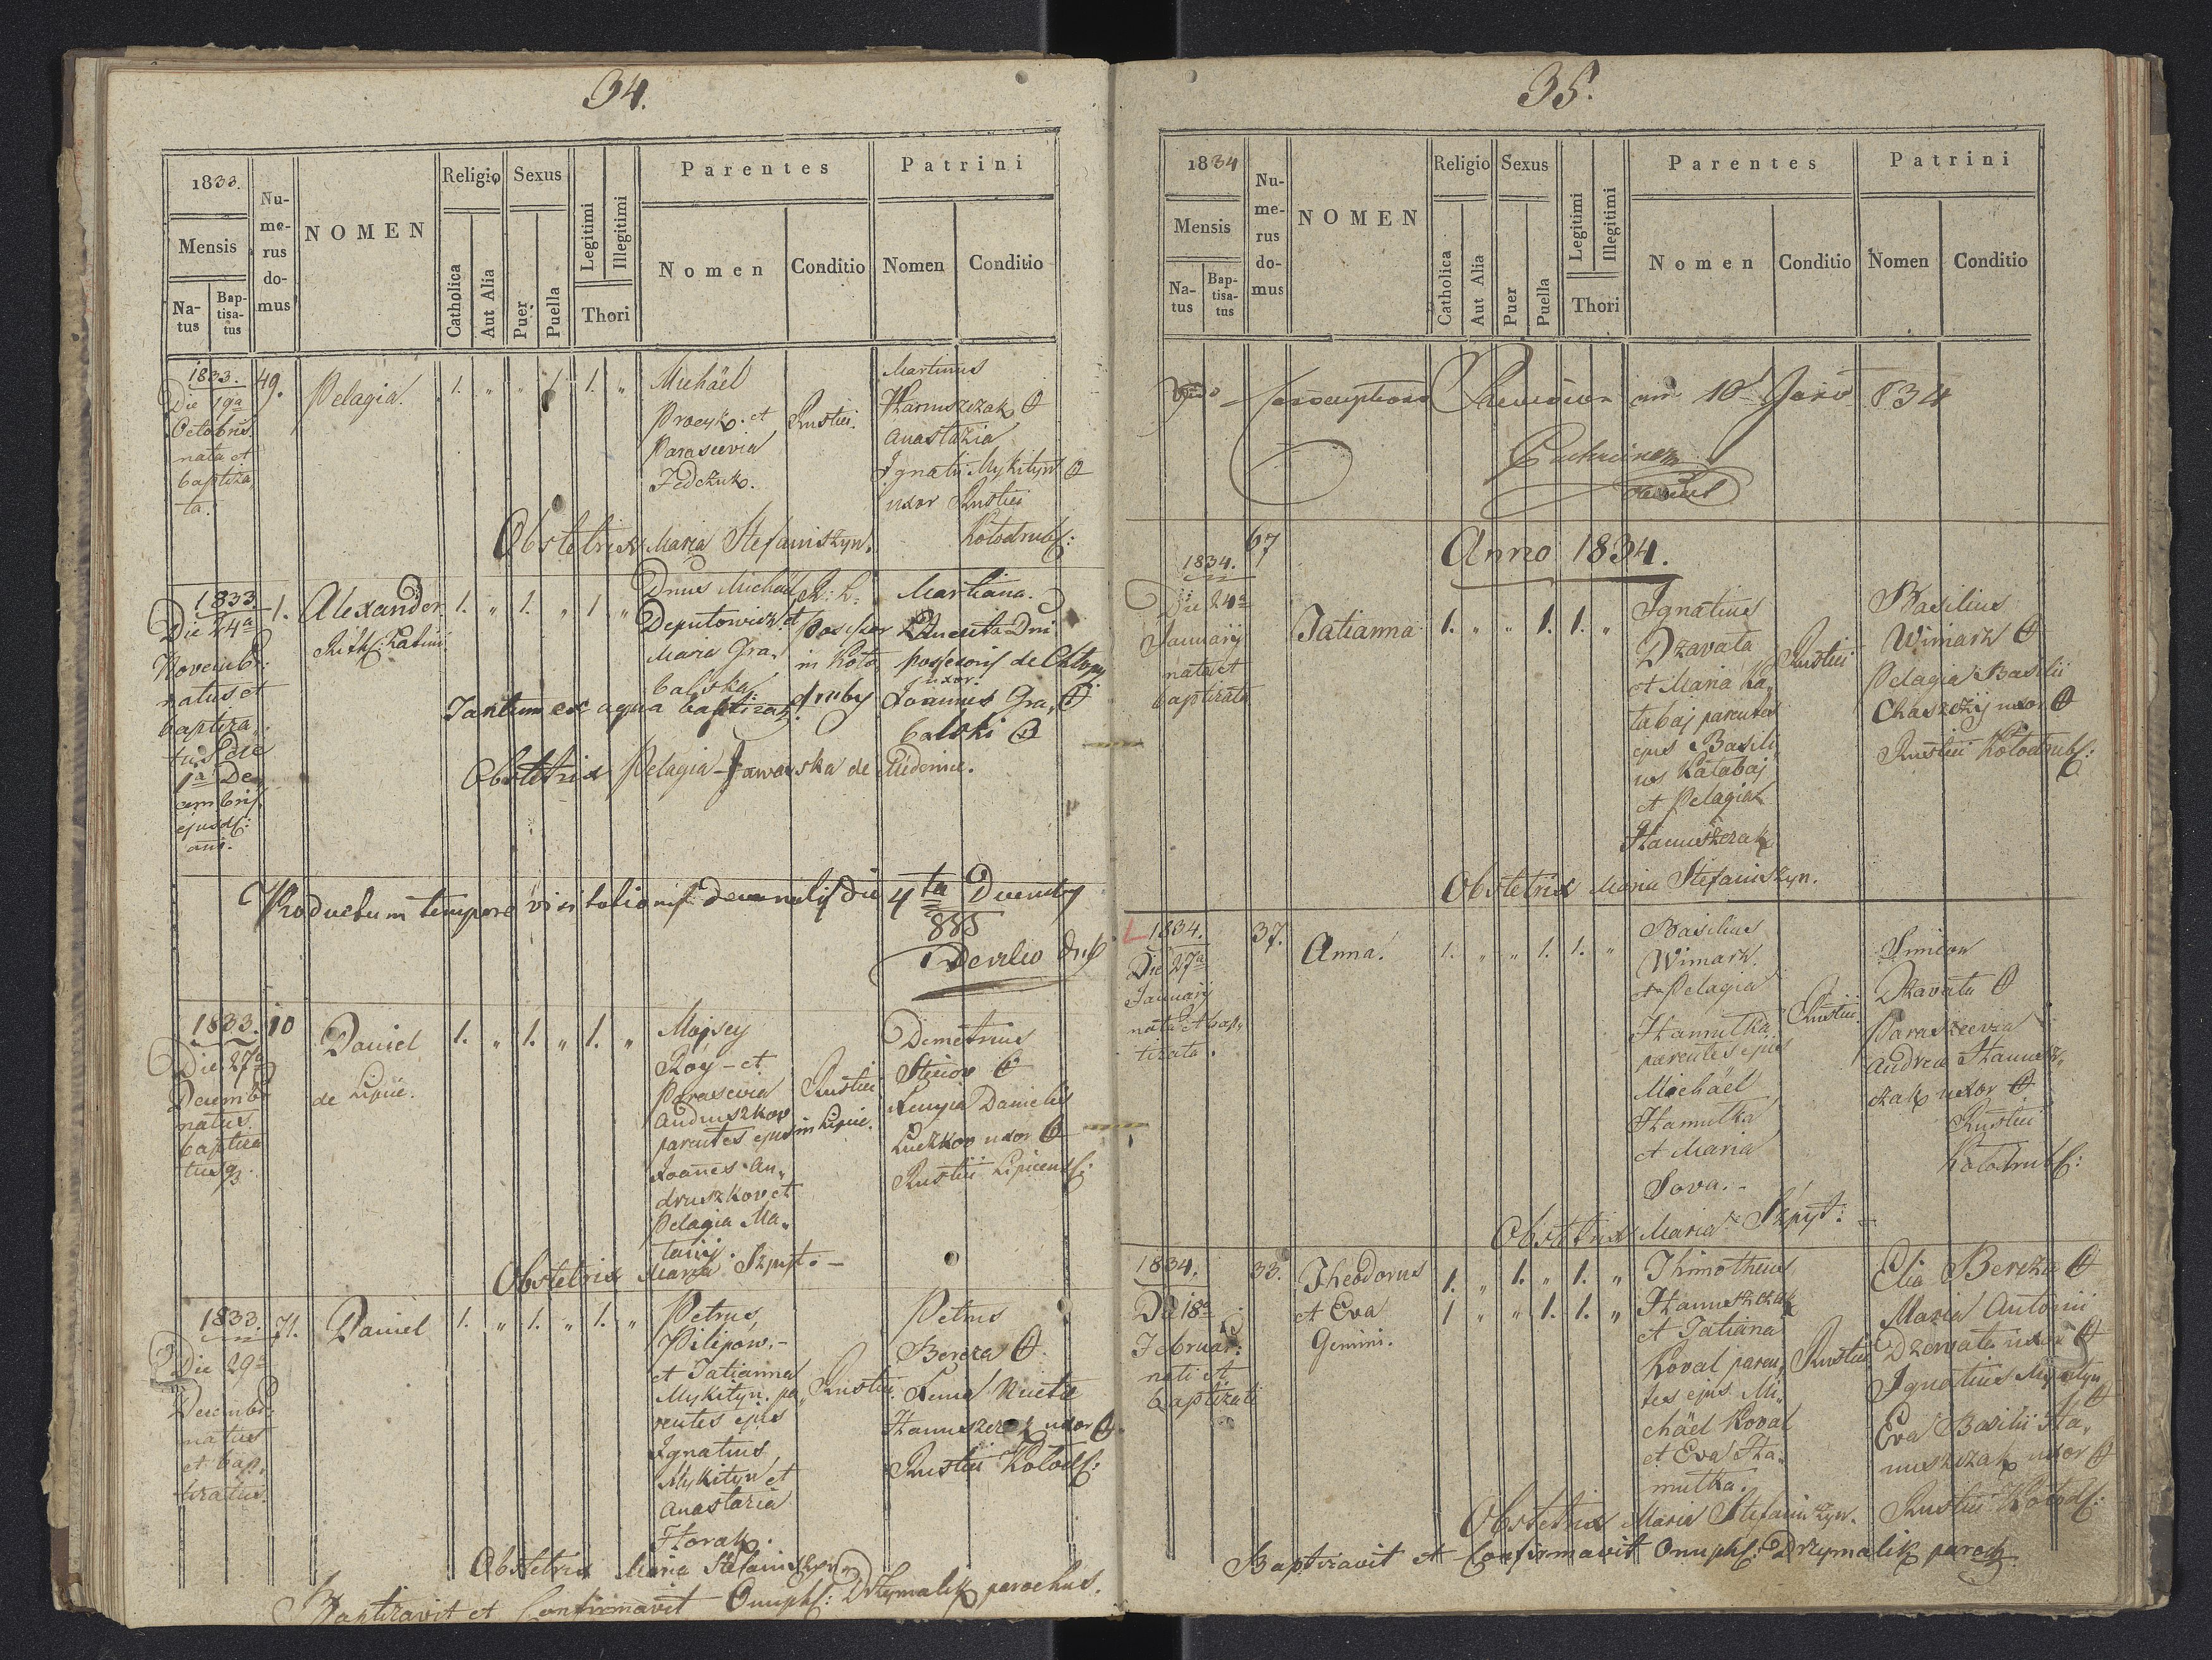 34.
1833.
Mensis
Na-
tus
Bap-
tisa-
tus
Nu-
me-
rus
do-
mus
NOMEN
Religio
Catholica
Aut Alia
Sexus
Puer
Puella
Legitimi
Illegitimi
Thori
Parentes
Nomen
Conditio
Patrini
Nomen
Conditio
1833.
Die 19a
Octobris
nata et
baptiza,
ta.
49.
Pelagia.
1. " " 1. 1. "
Michäel
Procyk. et
Parascevia
Fedczuk.
Rustici.
Martinus
Hanuszczak
Anastazia
Ignatii Mykityn
uxor Rustici
Kołodrub:
Obstetrix Maria Stefaniszyn.
1833
Die 24a
Novembr:
natus et
baptiza,
tus die
1a De,
cembris
ejusd:
ani.
1.
Alexander
Rit: Latini
1. " 1. " 1 "
Dnus Michael
Deputowicz et
Maria Gra,
balska.
R: L.
Possessor
in Koło
druby
Martiana.
Dni
possessoris de Chłopy
uxor.
Joannes Gra,
balski
Tantum ex aqua baptizat.
Obstetrix Pelagia Jaworska de Medenice.
Productum tempore visitationis decanalis die 4ta Decembris
833
1833.
Die 27a
Decembr
natus
baptiza
tus
10
Daniel
de Lipice.
1. " 1. " 1. "
Mojsey
Roy - et
Parascevia
Andruszkow
parentes ejus
Joannes An,
druszkow et
Pelagia Ma,
tarij.
Rustici
in Lipice.
Demetrius
Stecior
Xenyia Danielis
Luczkow uxor
Rustici Lipicens:
Obstetrix Maria Szpyt: -
1833.
Die 29a
Decembr:
natus
et bap,
tizatus.
71.
Daniel
1. " 1. " 1. "
Petrus
Pilipow. -
et Tatianna
Mykityn, pa,
rentes ejus
Ignatius
Mykityn et
Anastazia
Horak.
Rustici.
Petrus
Bereza
Hanuszczak uxor
Rustici Kołod:
Obstetrix Maria Stefaniszyn
Baptizavit et Confirmavit Onuph: Drzymalik parochus.
35.
1834
Mensis
Na-
tus
Bap-
tisa-
tus
Nu-
me-
rus
do-
mus
NOMEN
Religio
Catholica
Aut Alia
Sexus
Puer
Puella
Legitimi
Illegitimi
Thori
Parentes
Nomen
Conditio
Patrini
Nomen
Conditio
834
Anno 1834.
1834.
Die 24a
Januarij
nata et
baptizata
67
Tatianna
1. " " 1. 1. "
Ignatius
Dzavata
et Maria Ka,
tabaj parentes
ejus Basili
us Katabaj
et Pelagia
Hanuszczak
Rustici
Basilius
Wimarz
Pelagia Basilii
Chaszczij uxor
Rustici Kołodrub:
Obstetrix Maria Stefaniszyn.
1834.
Die 27a
Januarij
nata et bap,
tizata.
37.
Anna.
1. " " 1. 1. "
Basilius
Wimarz.
et Pelagia
Hamulka
parentes ejus
Michäel
Hamulka
et Maria
Sova. -
Rustici.
Simeon
Dzavata
Paraszcevia
Andreae Hanusz,
czak uxor
Rustici
Kołodrub:
Obstetrix Maria Szpyt:
1834.
Die 18a
Februar:
nati et
baptizati
33.
Theodorus
et Eva
Gemini.
1. " 1. " 1. "
1 " " 1. 1. "
Thimotheus
Hanuszczak
et Tatiana
Koval paren,
tes ejus Mi,
chäel Koval
et Eva Ha,
mulka.
Rustici
Elia Bereza
Maria Antonii
Dzavata uxor
Ignatius Mykityn
Eva Basilii Ha,
nuszczak uxor
Rustici Kołod:
Obstetrix Maria Stefaniszyn.
Baptizavit et Confirmavit Onuph: Drzymalik paroch.